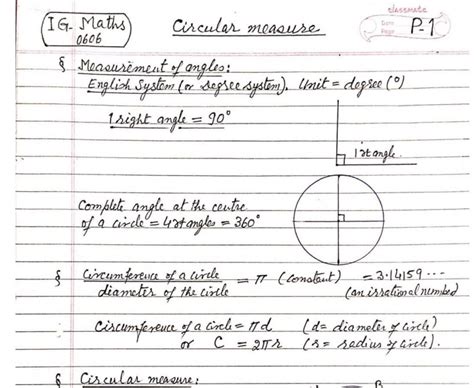 IG Maths
0606
Circular measure
classmate
Date
Page
P.1
§ Measurement of angles:
English System (or degree system). Unit = degree (°)
1 right angle = 90°
1 rt angle.
Complete angle at the centre
of a circle = 4 rt angles = 360°
§ Circumference of a circle / diameter of the circle = π (constant) = 3.14159...
(an irrational number)
Circumference of a circle = πd (d = diameter of circle)
or C = 2πr (r = radius of circle).
§ Circular measure:
B